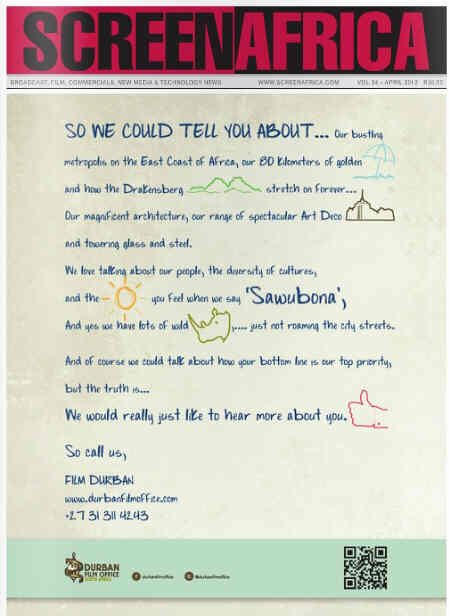 SCREENAFRICA
BROADCAST, FILM, COMMERCIALS, NEW MEDIA & TECHNOLOGY NEWS WWW.SCREENAFRICA.COM VOL 24 – APRIL 2012
SO WE COULD TELL YOU ABOUT... Our bustling
metropolis on the East Coast of Africa, our 80 Kilometers of golden
and how the Drakensberg stretch on forever...
Our magnificent architecture, our range of spectacular Art Deco
and towering glass and steel.
We love talking about our people, the diversity of cultures,
and the you feel when we say 'Sawubona';
And yes we have lots of wild ,.... just not roaming the city streets.
And of course we could talk about how your bottom line is our top priority,
but the truth is...
We would really just like to hear more about you.
So call us,
FILM DURBAN
www.durbanfilmoffice.com
+27 31 311 4243
DURBAN
FILM OFFICE
SOUTH AFRICA
durbanfilmoffice @durbanfilmoffice